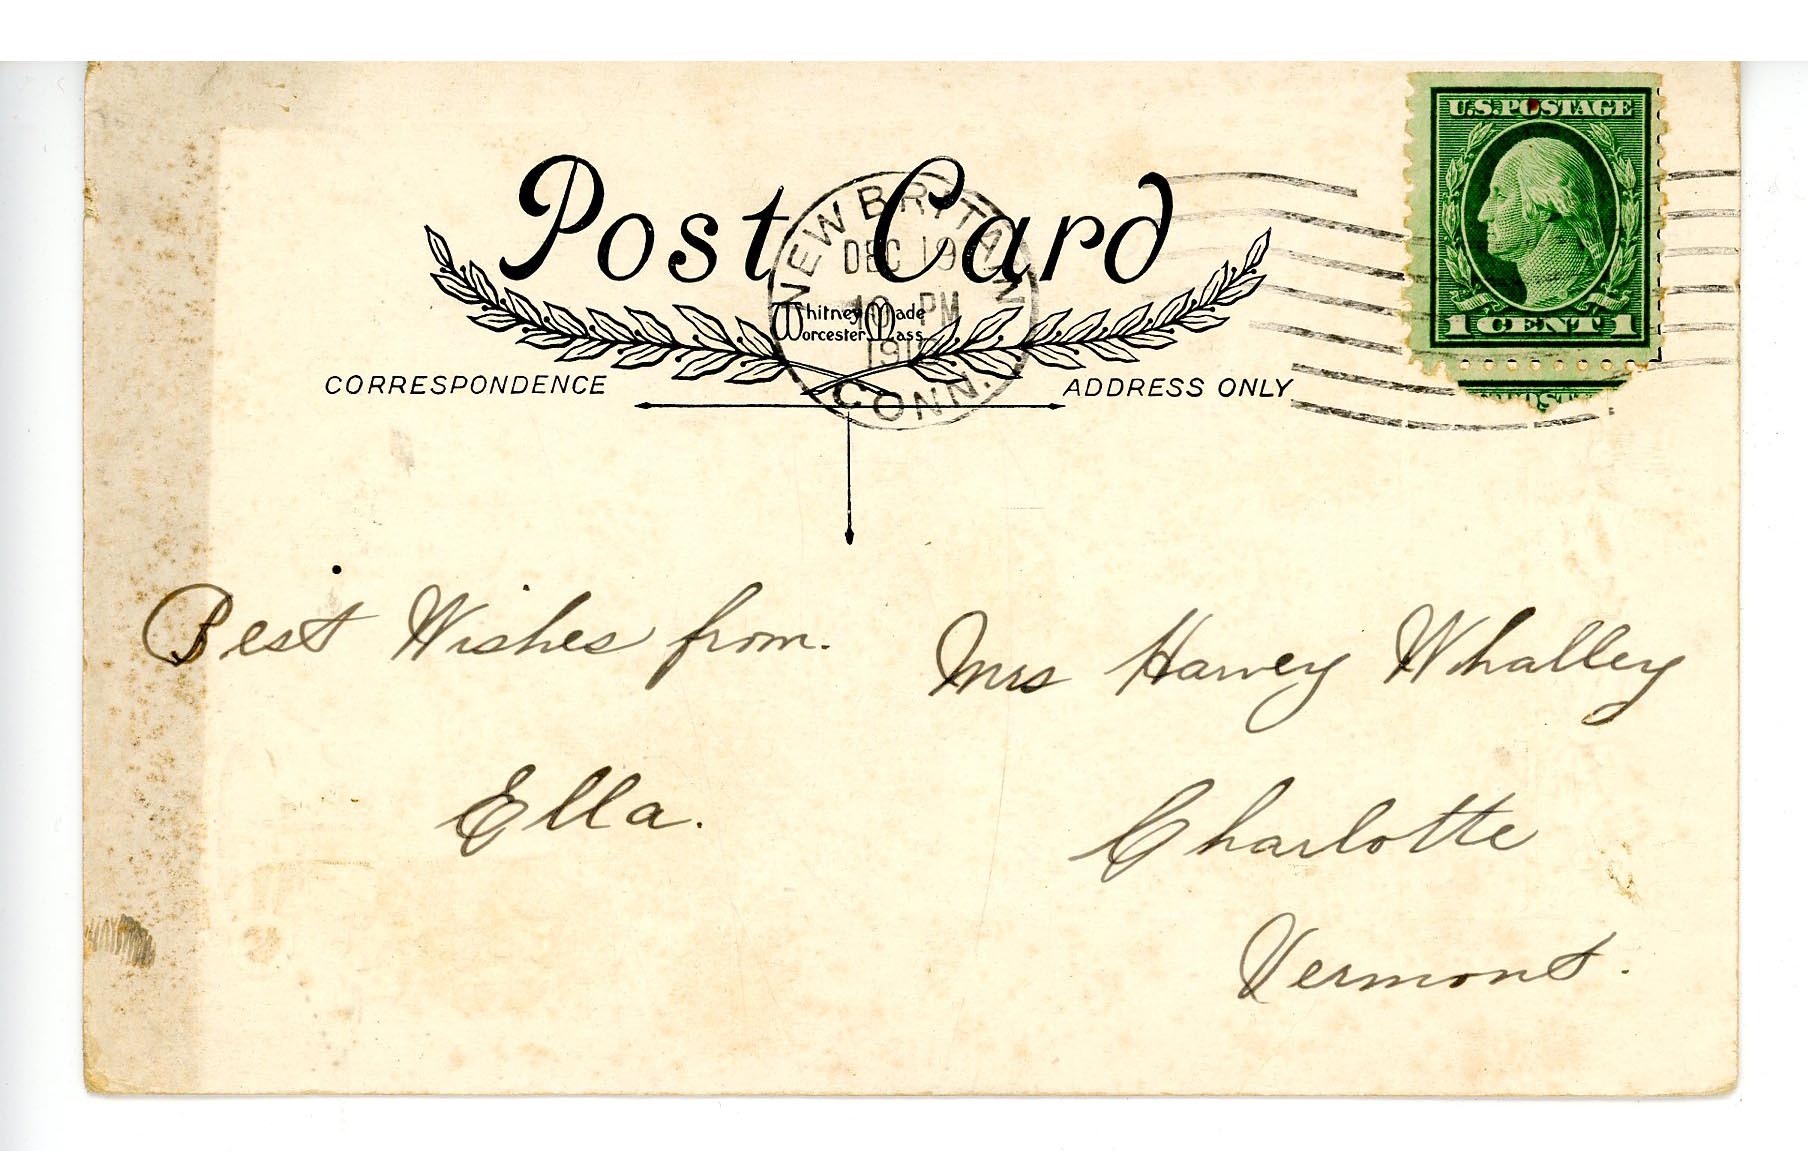 U.S. POSTAGE
1 CENT 1
Post Card
NEW BRITAIN
DEC 19
PM
CONN.
Whitney Made
Worcester Mass
CORRESPONDENCE
ADDRESS ONLY
Best Wishes from.
Ella.
Mrs Harvey Whalley
Charlotte
Vermont.